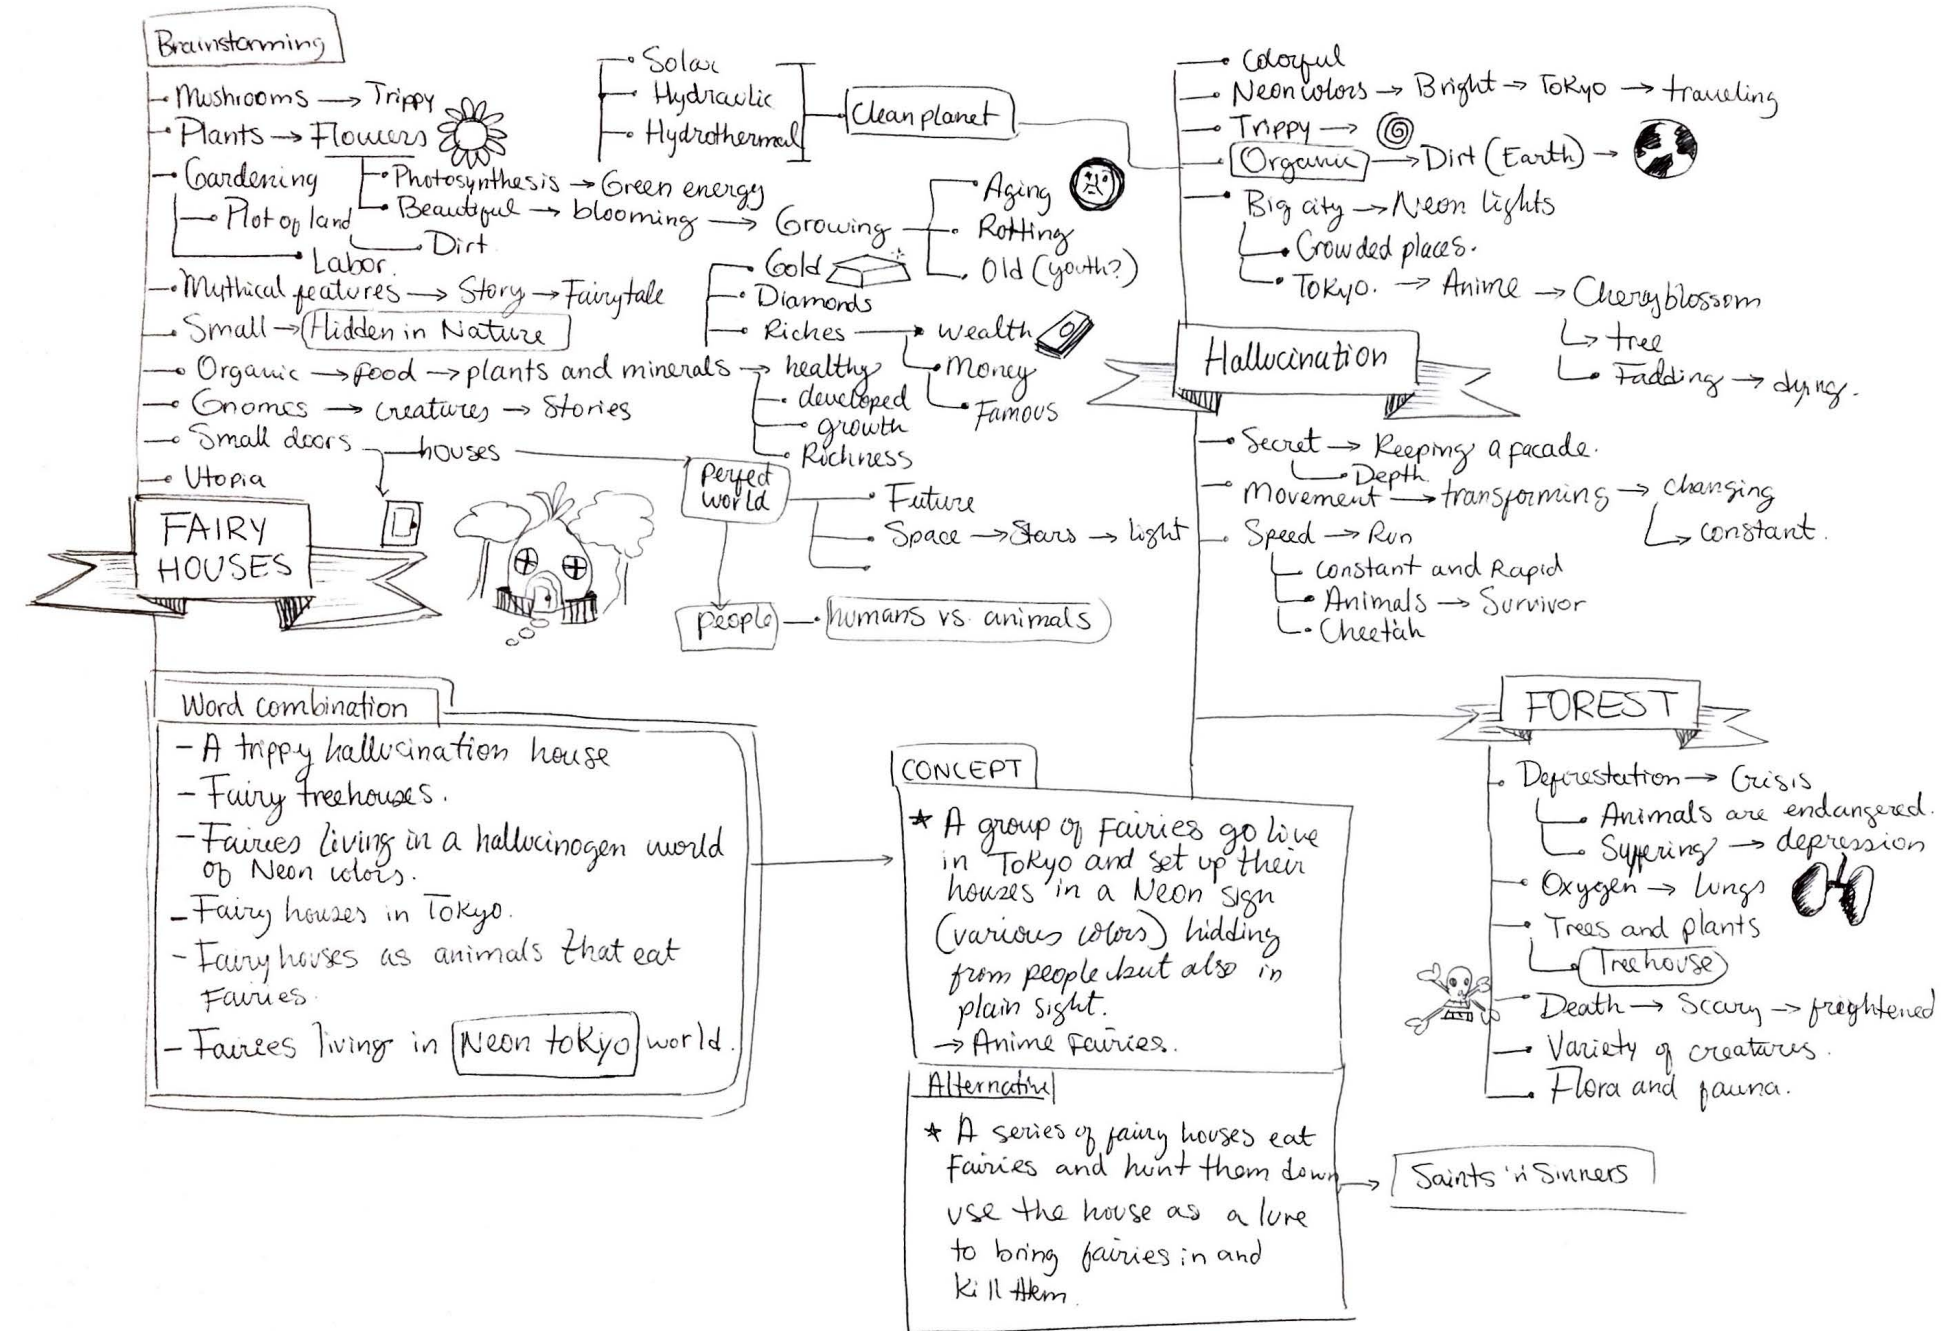 Brainstorming
Mushrooms → Trippy
Plants → Flowers
Photosynthesis → Green energy
Beautiful → blooming → Growing
Aging
Rotting
Old (youth?)
Gardening
Plot of land
Dirt
Labor.
Mythical features → Story → Fairytale
Small → Hidden in Nature
Organic → food → plants and minerals → healthy
developed
growth
Richness
Gold
Diamonds
Riches → wealth
Money
Famous
Gnomes → creatures → Stories
Small doors
houses
Utopia
FAIRY
HOUSES
Perfect
world
Future
Space → Stars → light
people
humans vs. animals
Solar
Hydraulic
Hydrothermal
Clean planet
Colorful
Neon colors → Bright → Tokyo → traveling
Trippy →
Organic → Dirt (Earth) →
Big city → Neon lights
Crowded places.
Tokyo. → Anime → Cheryblossom
tree
Fadding → dying.
Hallucination
Secret → Keeping a facade.
Depth.
Movement → transforming → changing
constant.
Speed → Run
Constant and Rapid
Animals → Survivor
Cheetah
FOREST
Deforestation → Crisis
Animals are endangered.
Suffering → depression
Oxygen → lungs
Trees and plants
Treehouse
Death → Scary → frightened
Variety of creatures.
Flora and fauna.
Word combination
- A trippy hallucination house
- Fairy treehouses.
- Fairies living in a hallucinogen world
of Neon colors.
- Fairy houses in Tokyo.
- Fairy houses as animals that eat
Fairies.
- Fairies living in Neon tokyo world.
CONCEPT
* A group of Fairies go live
in Tokyo and set up their
houses in a Neon sign
(various colors) hidding
from people but also in
plain sight.
→ Anime Fairies.
Alternative
* A series of fairy houses eat
Fairies and hunt them down
use the house as a lure
to bring fairies in and
kill them.
Saints 'n' Sinners